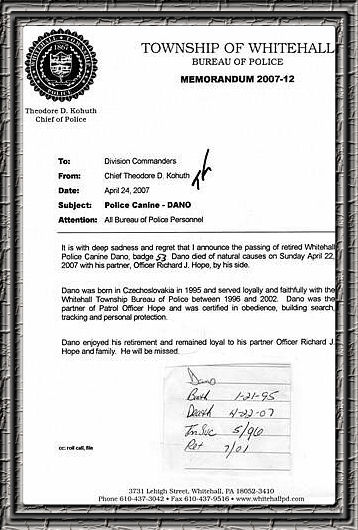 TOWNSHIP OF WHITEHALL
BUREAU OF POLICE
MEMORANDUM 2007-12
WHITEHALL TOWNSHIP
1867
POLICE
Theodore D. Kohuth
Chief of Police
To: Division Commanders
From: Chief Theodore D. Kohuth
Date: April 24, 2007
Subject: Police Canine - DANO
Attention: All Bureau of Police Personnel
It is with deep sadness and regret that I announce the passing of retired Whitehall
Police Canine Dano, badge 53. Dano died of natural causes on Sunday April 22,
2007 with his partner, Officer Richard J. Hope, by his side.
Dano was born in Czechoslovakia in 1995 and served loyally and faithfully with the
Whitehall Township Bureau of Police between 1996 and 2002. Dano was the
partner of Patrol Officer Hope and was certified in obedience, building search,
tracking and personal protection.
Dano enjoyed his retirement and remained loyal to his partner Officer Richard J.
Hope and family. He will be missed.
Dano
Birth 1-21-95
Death 4-22-07
In Svc 5/96
Ret 7/01
cc: roll call, file
3731 Lehigh Street, Whitehall, PA 18052-3410
Phone 610-437-3042 • Fax 610-437-9516 • www.whitehallpd.com